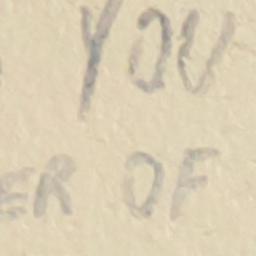 YOU
ER OF